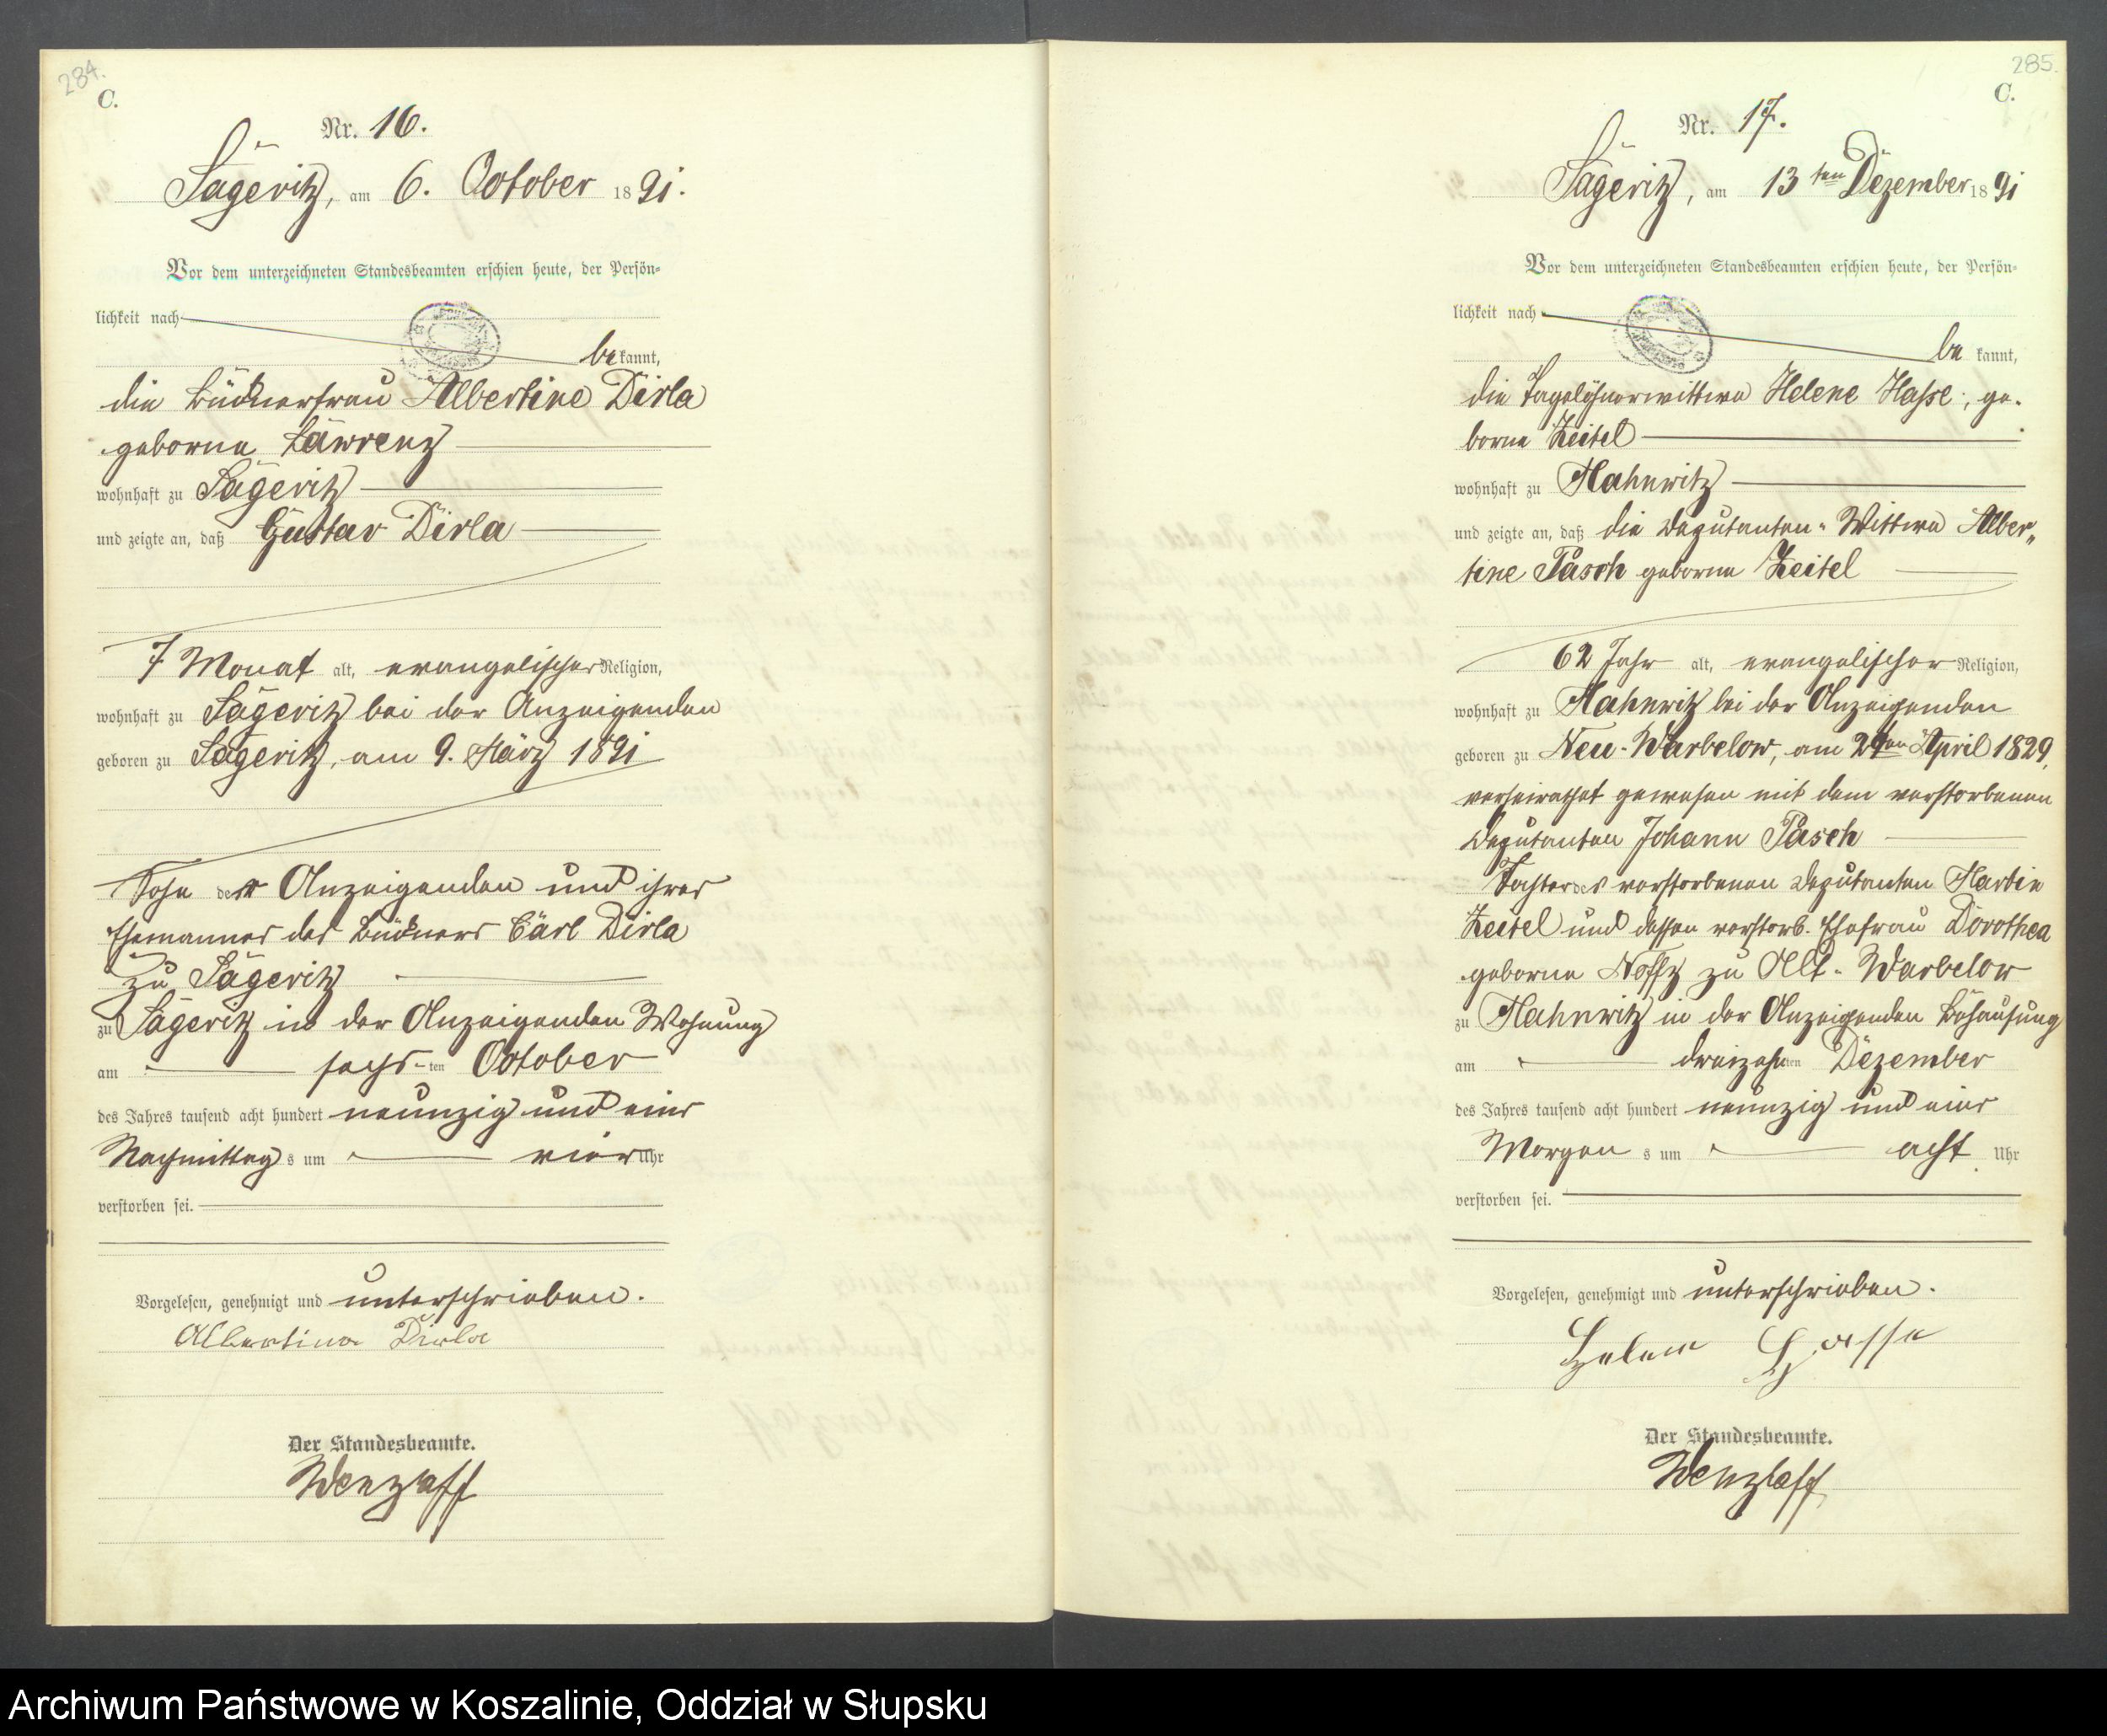 284.
C.
Nr. 16.
Sägeritz, am 6. October 1891.
Vor dem unterzeichneten Standesbeamten erschien heute, der Persön=
lichkeit nach
bekannt,
die Büdnerfrau Albertine Dirla
geborne Lawrenz
wohnhaft zu Sägeritz
und zeigte an, daß Gustav Dirla
7 Monat alt, evangelischer Religion,
wohnhaft zu Sägeritz bei der Anzeigenden
geboren zu Sägeritz, am 9. März 1891
Sohn der Anzeigenden und ihres
Ehemannes des Büdners Carl Dirla
zu Sägeritz
zu Sägeritz in der Anzeigenden Wohnung
am sechs-ten October
des Jahres tausend acht hundert neunzig und eins
Nachmittags um vier Uhr
verstorben sei.
Vorgelesen, genehmigt und unterschrieben.
Albertine Dirla
Der Standesbeamte.
Wenzlaff
285.
C.
Nr. 17.
Sägeritz, am 13ten Dezember 1891
Vor dem unterzeichneten Standesbeamten erschien heute, der Persön=
lichkeit nach
be kannt,
die Tagelöhnerwittwe Helene Hasse, ge-
borne Zeitel
wohnhaft zu Mahnwitz
und zeigte an, daß die Deputanten-Wittwe Alber„
tine Pasch geborne Zeitel
62 Jahr alt, evangelischer Religion,
wohnhaft zu Mahnwitz bei der Anzeigenden
geboren zu Neu-Warbelow, am ten April 1829,
verheirathet gewesen mit dem verstorbenen
Deputanten Johann Pasch
Tochter des verstorbenen Deputanten Martin
Zeitel und dessen verstorb. Ehefrau Dorothea
geborne zu Alt-Warbelow
zu Mahnwitz in der Anzeigenden Behausung
am dreizehnten Dezember
des Jahres tausend acht hundert neunzig und eins
Morgens um acht Uhr
verstorben sei.
Vorgelesen, genehmigt und unterschrieben.
Helene Hasse
Der Standesbeamte.
Wenzlaff
Archiwum Państwowe w Koszalinie, Oddział w Słupsku